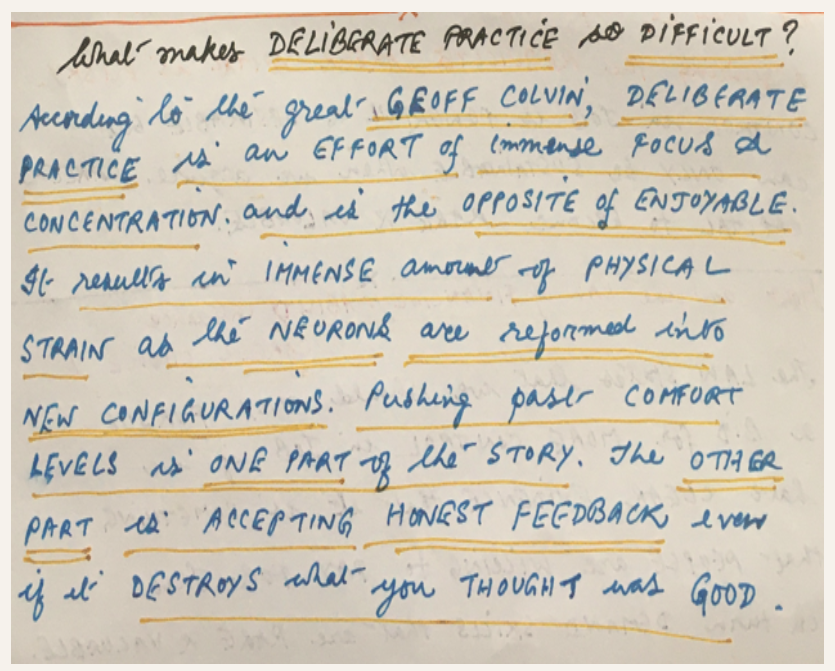 What makes DELIBERATE PRACTICE so DIFFICULT?
According to the great GEOFF COLVIN, DELIBERATE
PRACTICE is an EFFORT of immense FOCUS &
CONCENTRATION and is the OPPOSITE of ENJOYABLE.
It results in IMMENSE amount of PHYSICAL
STRAIN as the NEURONS are reformed into
NEW CONFIGURATIONS. Pushing past COMFORT
LEVELS is ONE PART of the STORY. The OTHER
PART is ACCEPTING HONEST FEEDBACK even
if it DESTROYS what you THOUGHT was GOOD.